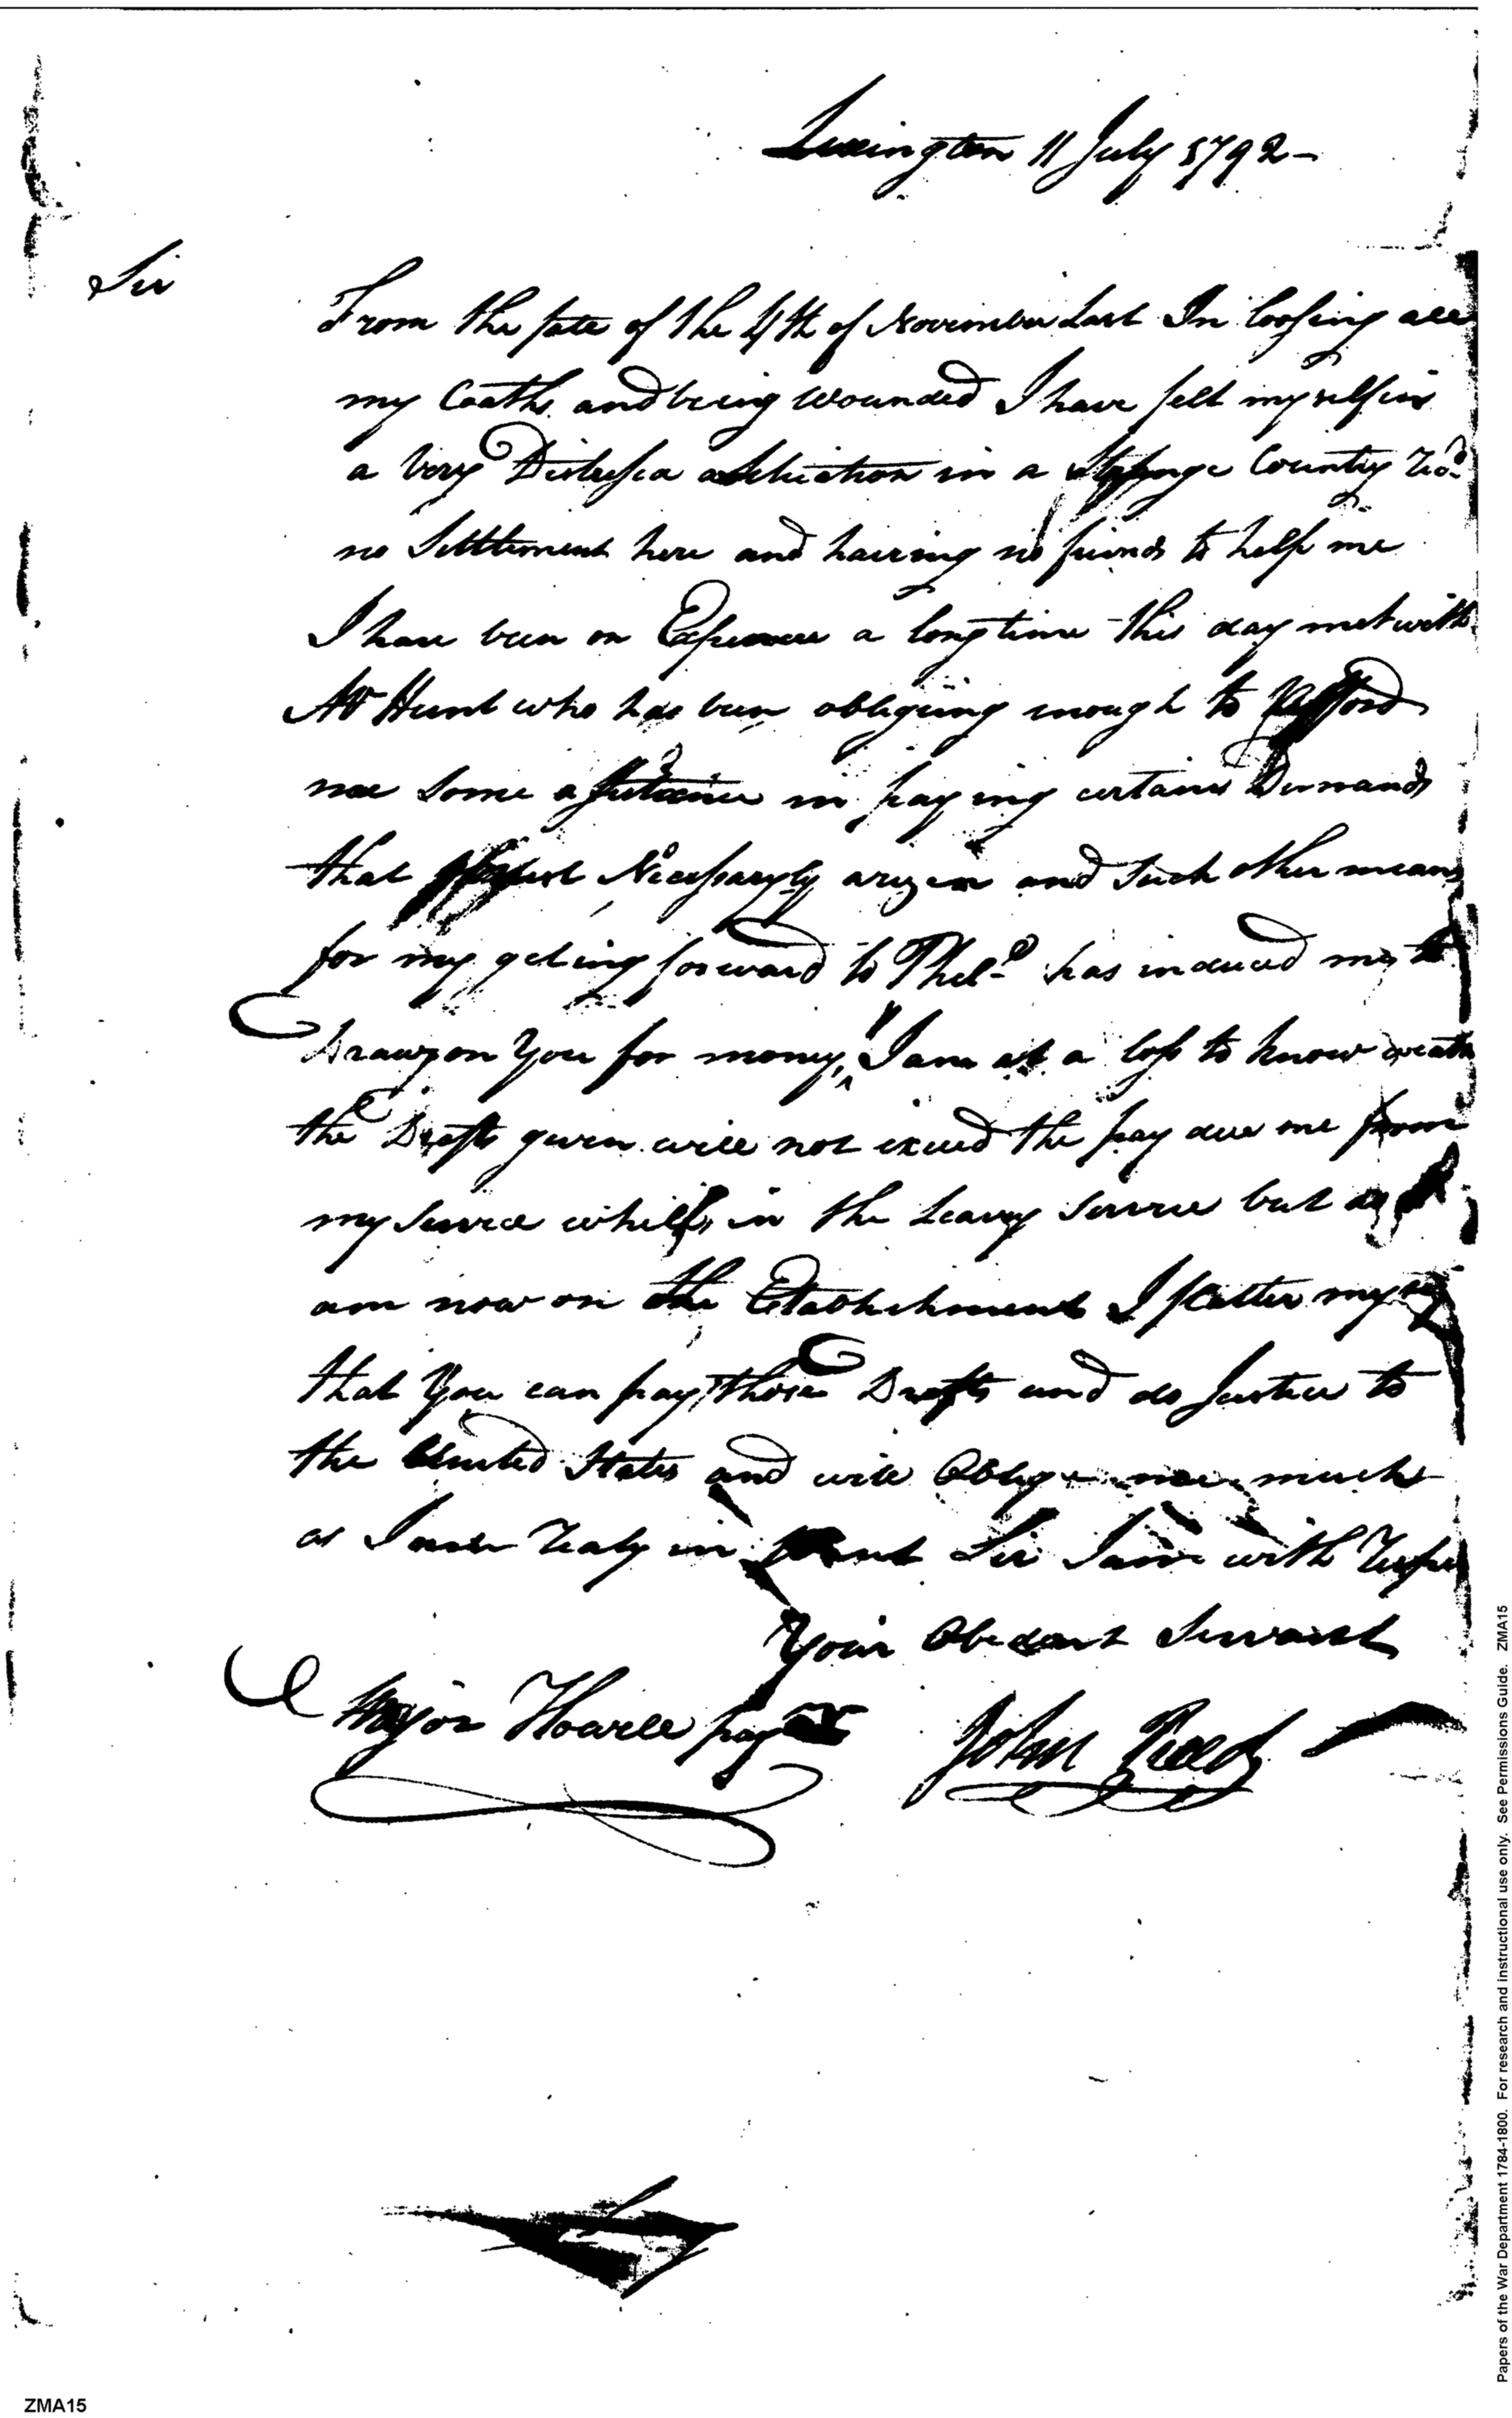 Lexington 11 July 1792 -
Sir
From the fate of the 4th of November Last In loosing all
my Cloaths and being Wounded I have felt myself in
a Very Distressed in a Strange Country
no Settlement here and having no friends to help me
I have been on Expence a long time this day met with
Mr Hunt who has been obligeing enough to afford
me some assistance in paying certain Demands
that must Necessaryly arizen and Such other means
for my geting forward to Phel.a has induced me to
Draw on You for money, I am at a loss to know
the Drafts given will not exceed the pay due me from
my Service whilst in the Leavy Service but as I
am now on the Establishment I flatter myself
that You can pay those Drafts and do Justice to
the United States and will Oblige me much
as I am in want Sir I am with
Your Obedient Servant
Major Howell pay
John Reed
ZMA15
Papers of the War Department 1784-1800. For research and instructional use only. See Permissions Guide. ZMA15